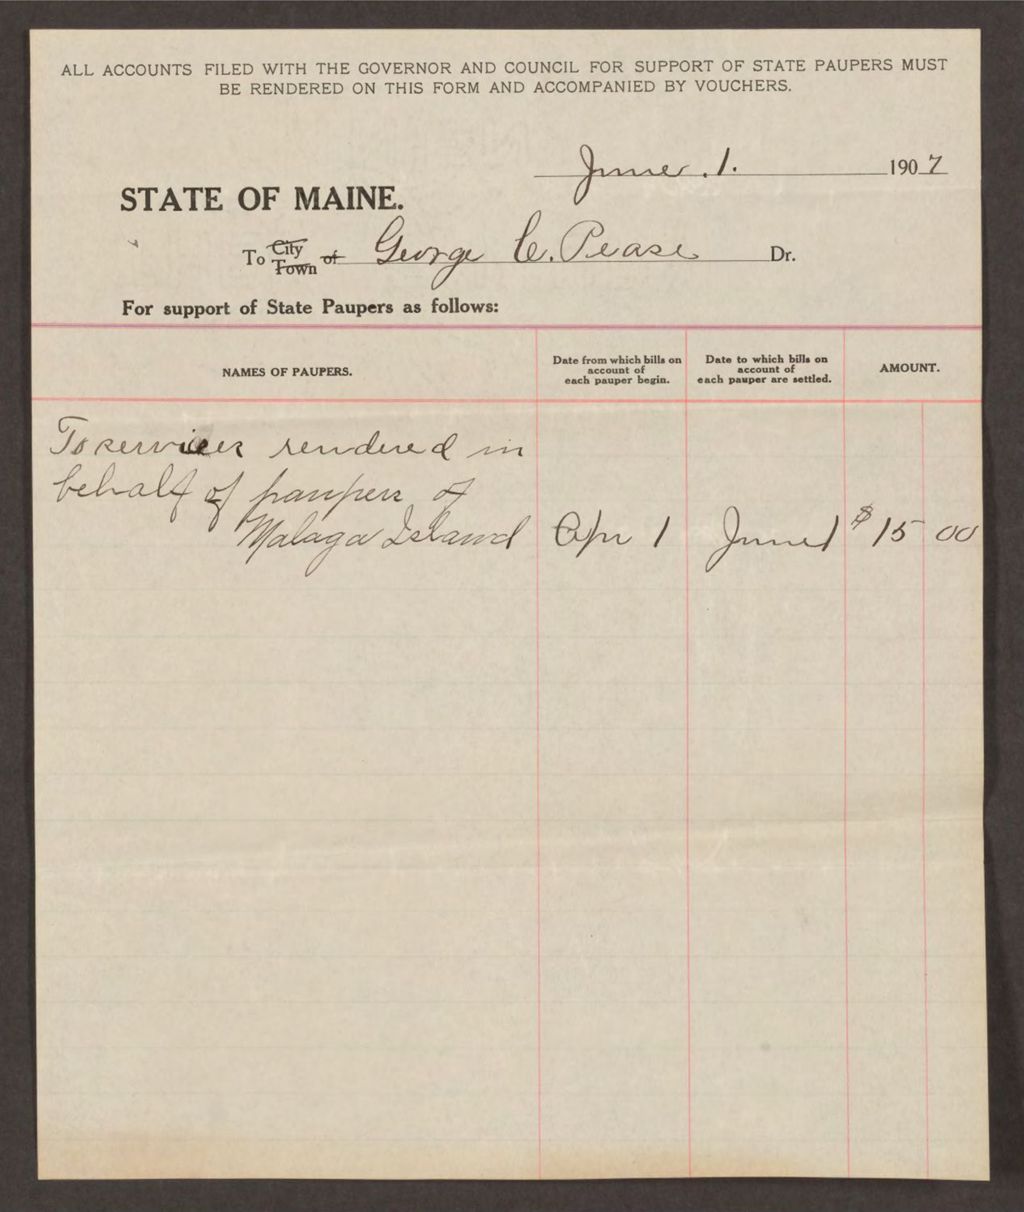 ALL ACCOUNTS FILED WITH THE GOVERNOR AND COUNCIL FOR SUPPORT OF STATE PAUPERS MUST
BE RENDERED ON THIS FORM AND ACCOMPANIED BY VOUCHERS.
June. 1. 1907
STATE OF MAINE.
To City Town of George C. Pease Dr.
For support of State Paupers as follows:
NAMES OF PAUPERS.
Date from which bills on
account of
each pauper begin.
Date to which bills on
account of
each pauper are settled.
AMOUNT.
To services rendered in
behalf of paupers of
Malaga Island Apr 1 June 1 $15 00